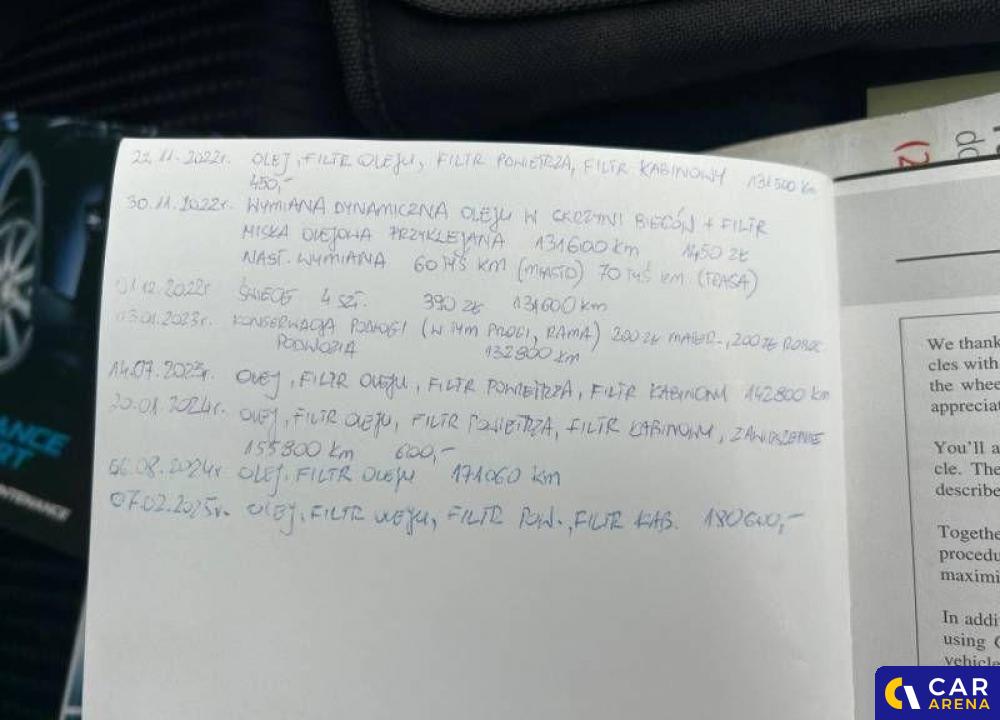 22.11.2022r. OLEJ, FILTR OLEJU, FILTR POWIETRZA, FILTR KABINOWY 131500 Km
450,-
30.11.2022r. WYMIANA DYNAMICZNA OLEJU W SKRZYNI BIEGÓW + FILTR
MISKA OLEJOWA PRZYKLEJANA 131600 km 1450 ZŁ
NAST. WYMIANA 60 TYŚ KM (MIASTO) 70 TYŚ km (TRASA)
01.12.2022r ŚWIECE 4 SZT. 390 ZŁ 131600 km
03.01.2023r. KONSERWACJA PODŁOGI (W TYM PROGI, RAMA) 200 ZŁ MATER., 200 ZŁ ROBOC
PODWOZIA 132800 km
14.07.2023r. OLEJ, FILTR OLEJU, FILTR POWIETRZA, FILTR KABINOWY 142800 km
20.01.2024r. OLEJ, FILTR OLEJU, FILTR POWIETRZA, FILTR KABINOWY, ZAWIESZENIE
155800 km 600,-
06.08.2024r OLEJ, FILTR OLEJU 171060 km
07.02.2025r. OLEJ, FILTR OLEJU, FILTR POW., FILTR KAB. 180600,-
ANCE
RT
NTENANCE
(2
do
We thank
cles with
the whee
appreciat
You'll a
cle. The
describe
Togethe
procedu
maximi
In addi
using
vehicle
CAR
ARENA